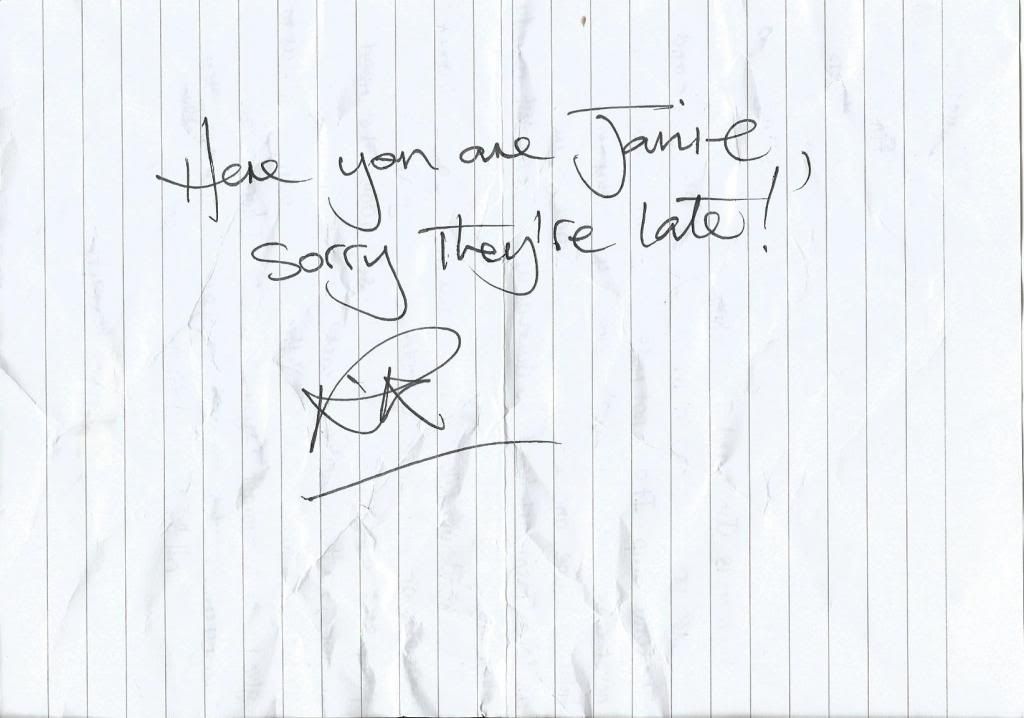 Here you are Jamie,
sorry they're late!